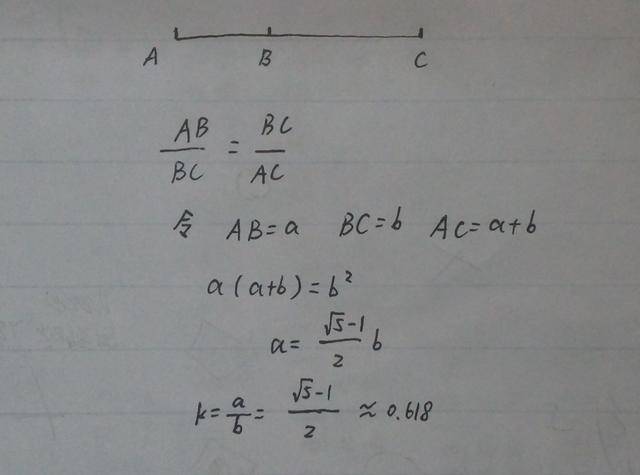 A B C
AB/BC = BC/AC
令 AB=a BC=b AC=a+b
a(a+b)=b²
a= (√5-1)/2 b
k=a/b= (√5-1)/2 ≈0.618